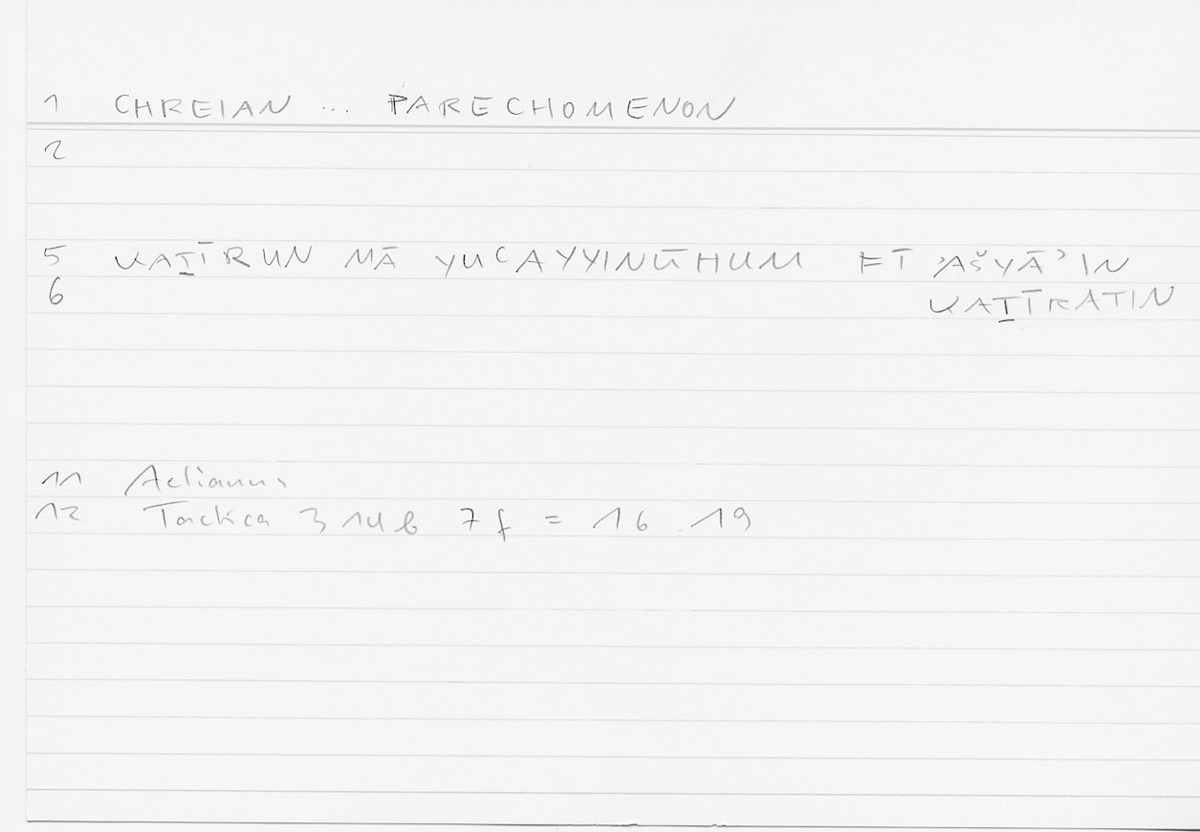 1 CHREIAN ... PARECHOMENON
2
5 KAṮĪRUN MĀ YUCAYYINŪHUM FĪ ʾAŠYĀʾIN
6 KAṮĪRATIN
11 Aelianus
12 Tactica 3 14 b 7 f = 16.19